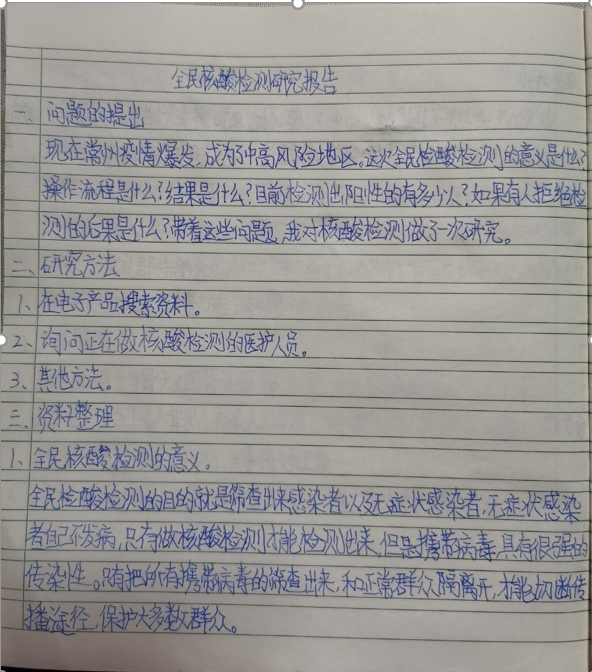 全民核酸检测研究报告
一、问题的提出
现在常州疫情爆发,成为了中高风险地区。这次全民检酸检测的意义是什么?
操作流程是什么?结果是什么?目前检测出阳性的有多少人?如果有人拒绝检
测的后果是什么?带着这些问题,我对核酸检测做了一次研究。
二、研究方法
1、在电子产品搜索资料。
2、询问正在做核酸检测的医护人员。
3、其他方法。
三、资料整理
1、全民核酸检测的意义。
全民检酸检测的目的就是筛查出来感染者以及无症状感染者,无症状感染
者自己不发病,只有做核酸检测才能检测出来,但是携带病毒,具有很强的
传染性。只有把所有携带病毒的筛查出来,和正常群众隔离开,才能切断传
播途径,保护大多数群众。